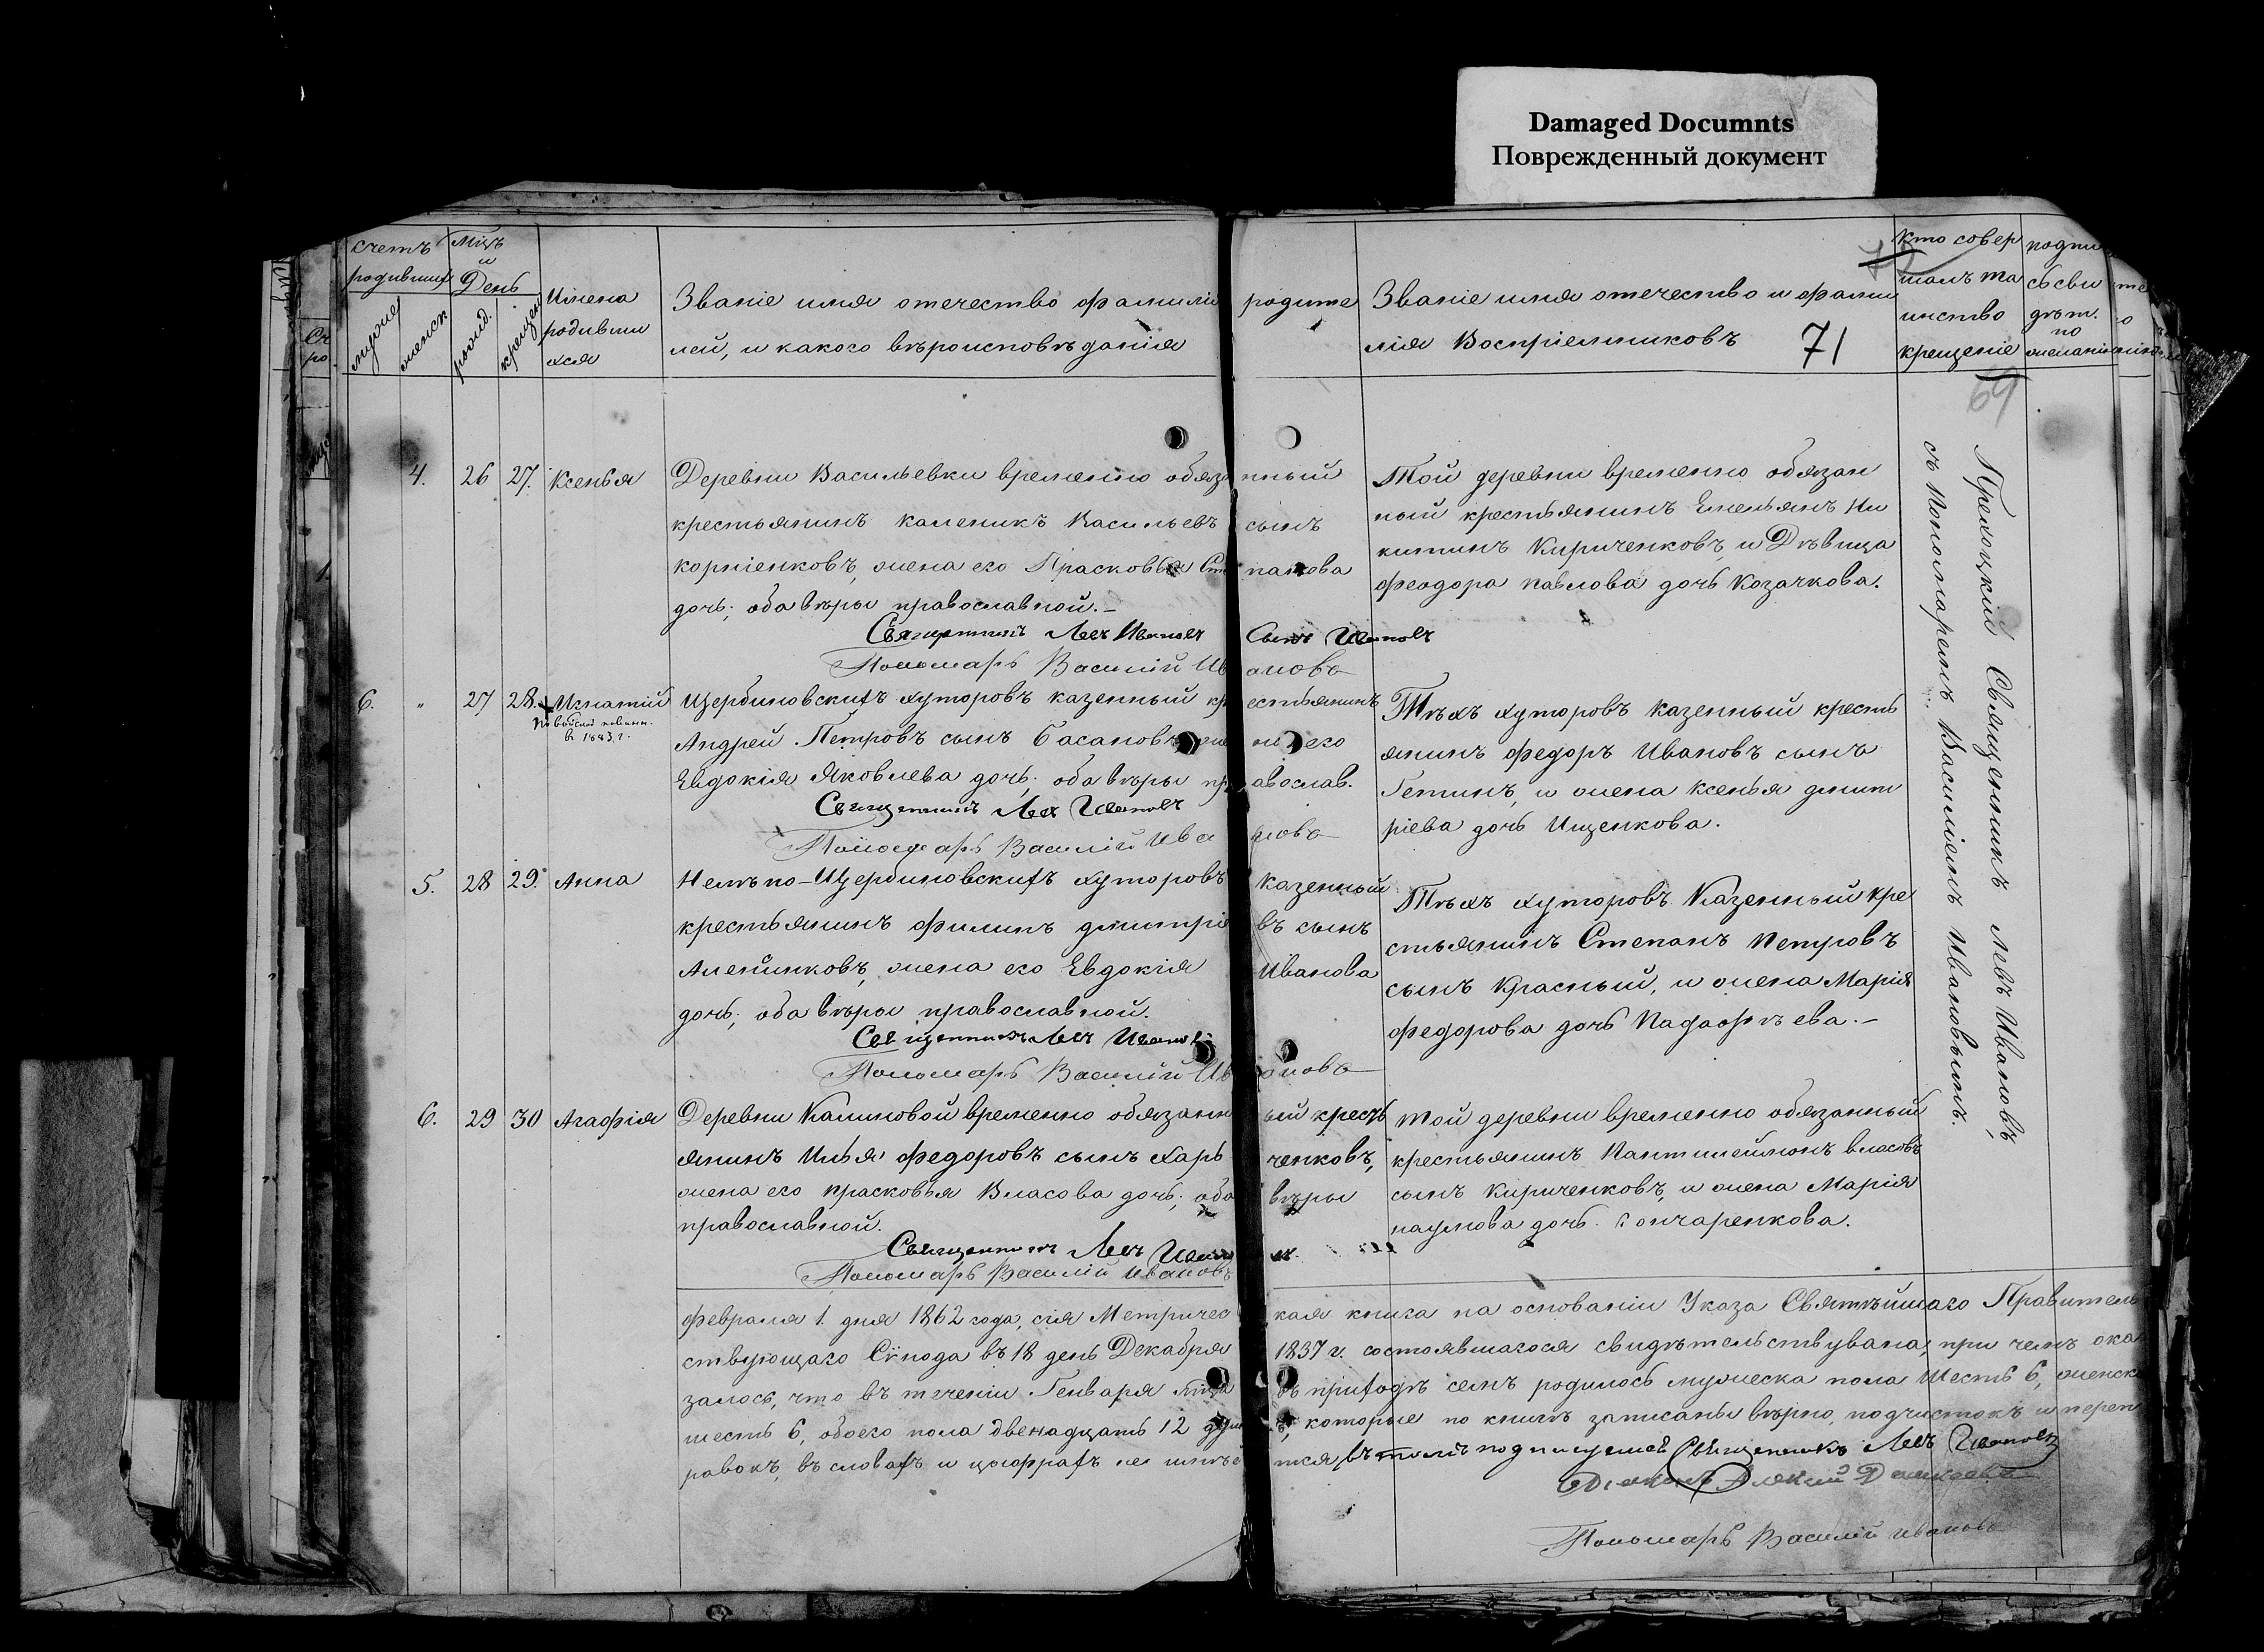 Damaged Documnts
Поврежденный документ
счетъ родившихся
мужеск
женск
Мцъ и День
рожд.
крещен
Имена родивши хся
Званіе имя отечество фамилія родите
лей, и какого вѣроисповѣданія
Званіе имя отечество и фами
лія Воспріемниковъ
71
Кто совер
шалъ та
инство
крещеніе
подпи
сь сви
дѣт.
по
желанію
69
4. 26 27. Ксенья
Деревни Васильевки временно обязанный
крестьянинъ Каленикъ Васильевъ сынъ
Корніенковъ, жена его Прасковья
дочь; оба вѣры православной.–
Священникъ Левъ Ивановъ
Пономарь Василій Ивановъ
Той деревни временно обязан
ный крестьянинъ Емельянъ Ни
китинъ Кириченковъ, и Дѣвица
Феодора Павлова дочь Козачкова.
6. " 27 28. Игнатій
в 1883 г.
Щербиновскихъ хуторовъ казенный крестьянинъ
Андрей Петровъ сынъ Басановъ жена его
Евдокія Яковлева дочь; оба вѣры православ.
Священникъ Левъ Ивановъ
Пономарь Василій Ивановъ
Тѣхъ хуторовъ казенный кресть
янинъ Федоръ Ивановъ сынъ
Гетинъ, и жена Ксенья Дмит
ріева дочь Ищенкова.
5. 28 29. Анна
Нелѣпо-Щербиновскихъ хуторовъ казенный
крестьянинъ Филипъ Дмитріевъ сынъ
жена его Евдокія Иванова
дочь; оба вѣры православной.
Священникъ Левъ Ивановъ
Пономарь Василій Ивановъ
Тѣхъ хуторовъ Казенный кре
стьянинъ Степанъ Петровъ
сынъ Красный, и жена Марія
Федорова дочь
6. 29 30 Агафія
Деревни Калиновой временно обязанный кресть
янинъ Илья Федоровъ сынъ Харьченковъ,
жена его Прасковья Власова дочь; оба вѣры
православной.
Священникъ Левъ Ивановъ
Пономарь Василій Ивановъ
Той деревни временно обязанный
крестьянинъ Пантилеймонъ Власовъ
сынъ Кириченковъ, и жена Марія
Наумова дочь Гончаренкова.
Священникъ Левъ Ивановъ,
съ Пономаремъ Василіемъ Ивановымъ.
Февраля 1. дня 1862 года, сія Метрическая книга на основаніи Указа Святѣйшаго Правитель
ствующаго Сѵнода въ 18 день Декабря 1837 г. состоявшагося свидѣтельствувана, при чемъ ока
залось, что въ теченіи Генваря мца въ приходѣ семъ родилось мужеска пола шесть 6, женска
шесть 6, обоего пола двенадцать 12 душъ, которые по книгѣ записаны вѣрно, подчистокъ и переп
равокъ, въ словахъ и цыфрахъ не имѣется въ томъ подписуемся Священникъ Левъ Ивановъ
Пономарь Василій Ивановъ